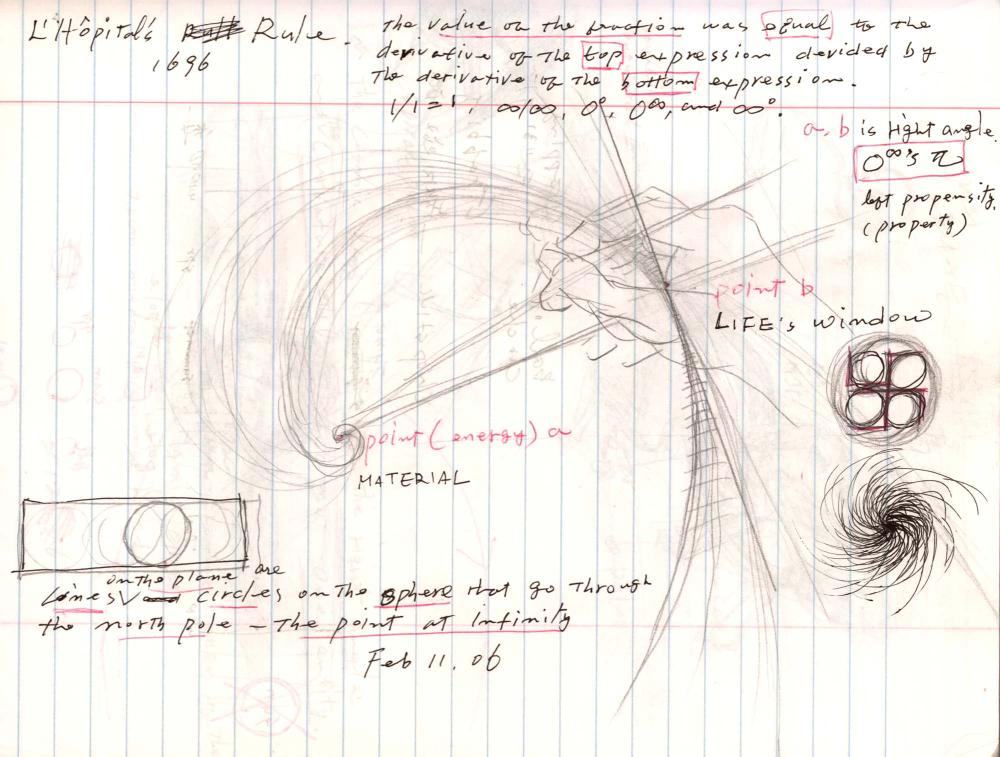 L'Hôpital's Rule.
1696
The value on the fraction was equal to the
derivative of the top expression devided by
The derivative of the bottom expression.
1/1 = 1, ∞/∞, 0⁰, 0^∞, and ∞⁰.
a, b is right angle.
0^∞'s π
left propensity,
(property)
point b
LIFE's window
point (energy) a
MATERIAL
on the plane are
Lines circles on the sphere that go through
the north pole – The point at Infinity
Feb 11. 06